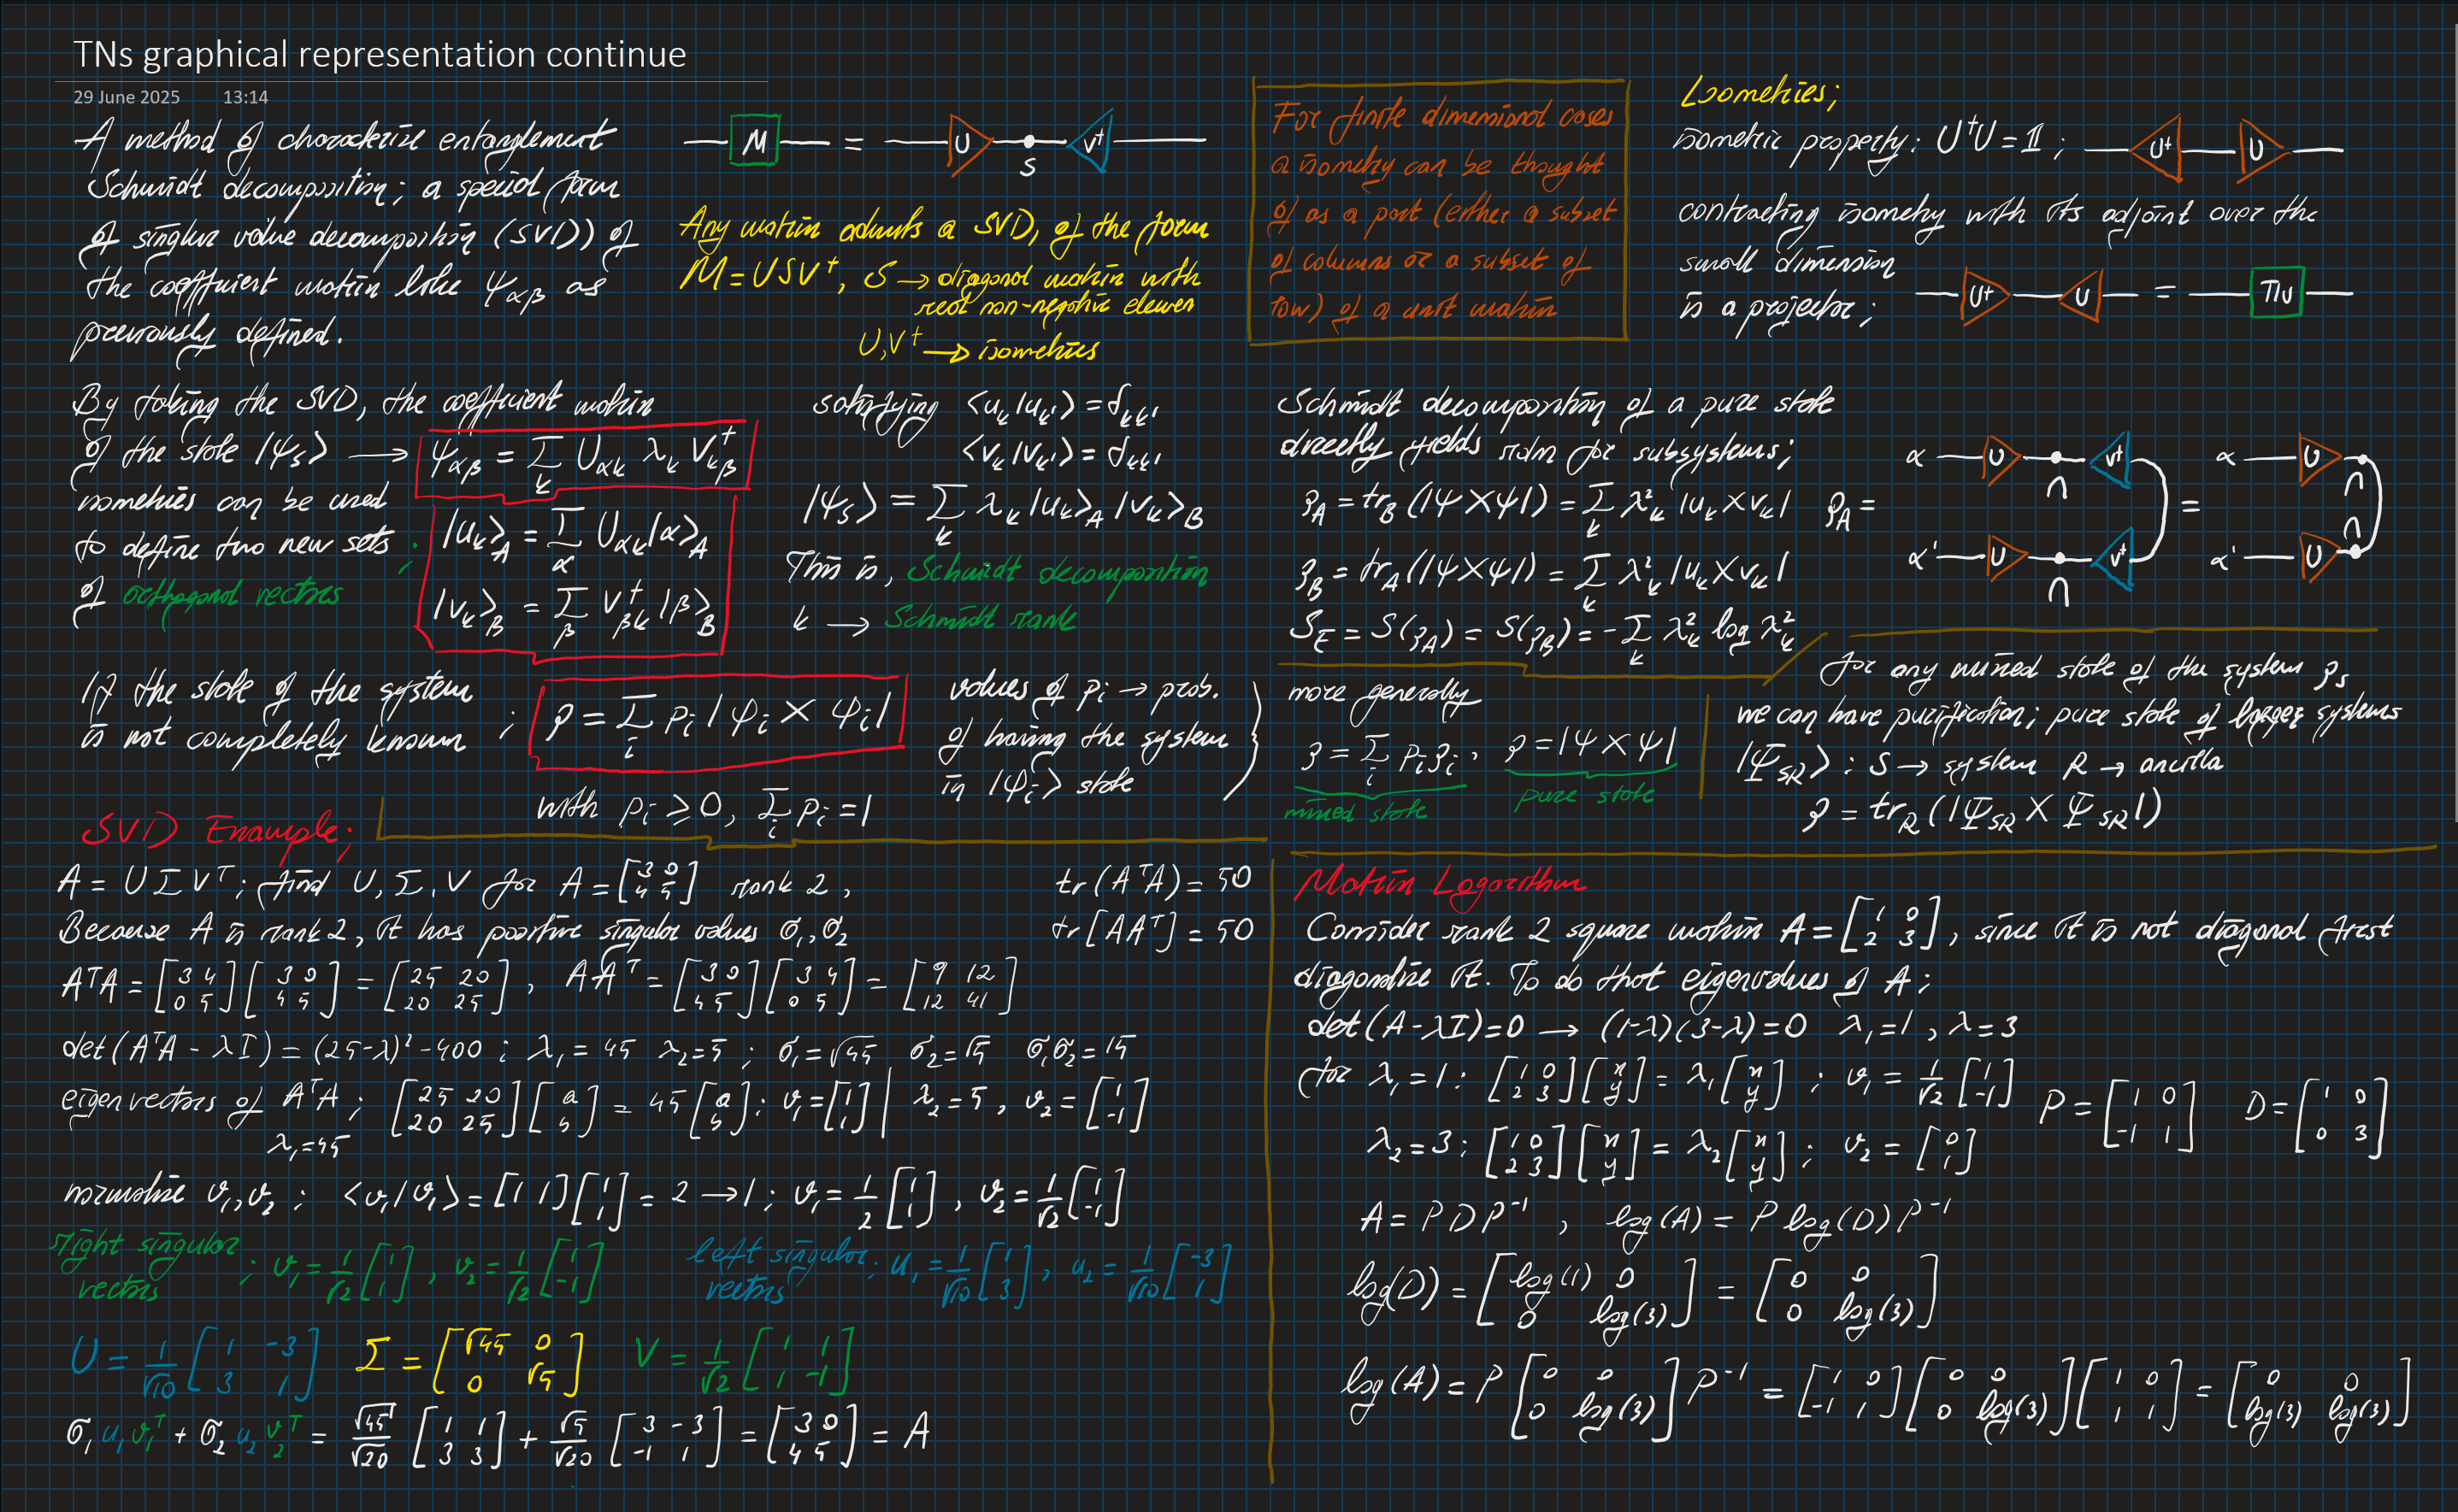 TNs graphical representation continue
29 June 2025 13:14
A method of characterize entanglement
Schmidt decomposition; a special form
of singular value decomposition (SVD) of
the coefficient matrix like ψαβ as
previously defined.
M = U S V†
Any matrix admits a SVD, of the form
M = USV†, S → diagonal matrix with
real non-negative elemen
U, V† → isometries
For finite dimensional cases
a isometry can be thought
of as a part (either a subset
of columns or a subset of
row) of a unit matrix
Isometries;
isometric property: U†U = 𝟙 ; U† U
contracting isometry with its adjoint over the
small dimension
is a projector; U† U = Πu
By taking the SVD, the coefficient matrix
of the state |ψs⟩ → ψαβ = Σk Uαk λk V†kβ
isometries can be used
to define two new sets ;
of orthogonal vectors
|uk⟩A = Σα Uαk |α⟩A
|vk⟩B = Σβ V†βk |β⟩B
satisfying ⟨uk|uk'⟩ = δkk'
⟨vk|vk'⟩ = δkk'
|ψs⟩ = Σk λk |uk⟩A |vk⟩B
This is, Schmidt decomposition
k → Schmidt rank
Schmidt decomposition of a pure state
directly yields rdm for subsystems;
ρA = trB (|ψ⟩⟨ψ|) = Σk λk² |uk⟩⟨vk|
ρB = trA (|ψ⟩⟨ψ|) = Σk λk² |uk⟩⟨vk|
SE = S(ρA) = S(ρB) = -Σk λk² log λk²
ρA = α U ∩ V† = α U ∩
α' U ∩ V† α' U ∩
If the state of the system
is not completely known ; ρ = Σi pi |φi⟩⟨φi|
with pi ⩾ 0, Σi pi = 1
values of pi → prob.
of having the system
in |φi⟩ state
more generally
ρ = Σi piρi, ρ = |ψ⟩⟨ψ|
mixed state pure state
for any mixed state of the system ρs
we can have purification; pure state of larger systems
|ΨSR⟩ : S → system R → ancilla
ρ = trR (|ΨSR⟩⟨ΨSR|)
SVD Example;
A = UΣVᵀ; find U, Σ, V for A = [3 0; 4 5] rank 2, tr(AᵀA) = 50
Because A is rank 2, it has positive singular values σ1, σ2 tr[AAᵀ] = 50
AᵀA = [3 4; 0 5][3 0; 4 5] = [25 20; 20 25], AAᵀ = [3 0; 4 5][3 4; 0 5] = [9 12; 12 41]
det(AᵀA - λI) = (25-λ)² - 400 ; λ1 = 45 λ2 = 5 ; σ1 = √45 σ2 = √5 σ1σ2 = 15
eigenvectors of AᵀA ; [25 20; 20 25][a; b] = 45[a; b] ; v1 = [1; 1] | λ2 = 5, v2 = [1; -1]
λ1 = 45
normalize v1, v2 ; ⟨v1|v1⟩ = [1 1][1; 1] = 2 → 1 ; v1 = 1/2 [1; 1], v2 = 1/√2 [1; -1]
right singular
vectors ; v1 = 1/√2 [1; 1], v2 = 1/√2 [1; -1]
left singular
vectors ; u1 = 1/√10 [1; 3], u2 = 1/√10 [-3; 1]
U = 1/√10 [1 -3; 3 1] Σ = [√45 0; 0 √5] V = 1/√2 [1 1; 1 -1]
σ1 u1 v1ᵀ + σ2 u2 v2ᵀ = √45/√20 [1 1; 3 3] + √5/√20 [3 -3; -1 1] = [3 0; 4 5] = A
Matrix Logarithm
Consider rank 2 square matrix A = [1 0; 2 3], since it is not diagonal first
diagonalize it. To do that eigenvalues of A;
det(A-λI) = 0 → (1-λ)(3-λ) = 0 λ1 = 1, λ = 3
for λ1 = 1 : [1 0; 2 3][x; y] = λ1[x; y] ; v1 = 1/√2 [1; -1]
λ2 = 3 ; [1 0; 2 3][x; y] = λ2[x; y] ; v2 = [0; 1]
P = [1 0; -1 1] D = [1 0; 0 3]
A = PDP⁻¹, log(A) = P log(D) P⁻¹
log(D) = [log(1) 0; 0 log(3)] = [0 0; 0 log(3)]
log(A) = P [0 0; 0 log(3)] P⁻¹ = [1 0; -1 1][0 0; 0 log(3)][1 0; 1 1] = [0 0; log(3) log(3)]